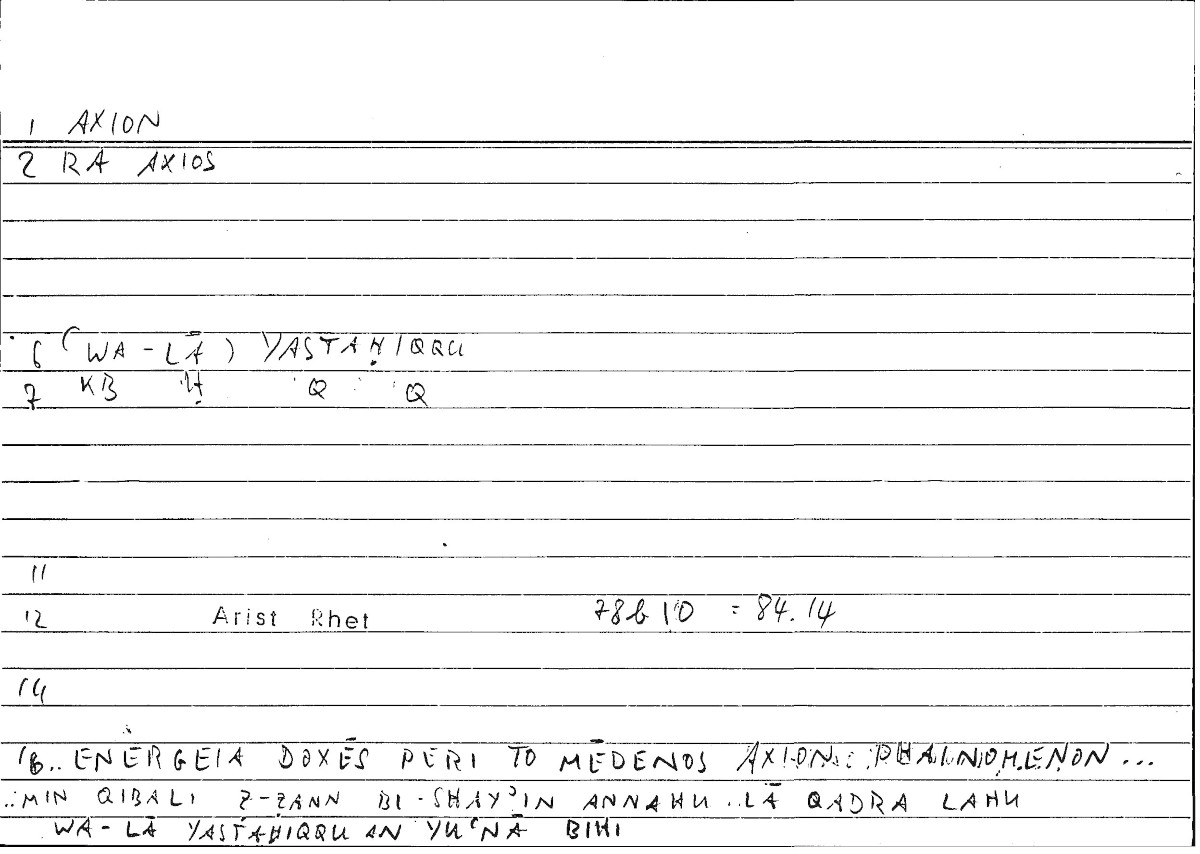 1 AXION
2 RA AXIOS
6 (WA-LĀ) YASTAḤIQQU
7 KB Ḥ Q Q
11
12 Arist Rhet 78b10 = 84.14
14
16.. ENERGEIA DOXĒS PERI TO MĒDENOS AXION PHAINOMENON...
..MIN QIBALI Ẓ-ẒANN BI-SHAYʾIN ANNAHU LĀ QADRA LAHU
WA-LĀ YASTAḤIQQU AN YUʿNĀ BIHI